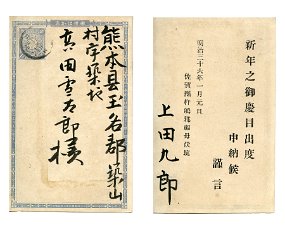 熊本県玉名郡築山
村字築地
真田雪太郎様
新年之御慶目出度
申納候
謹言
明治三十六年一月元日
上田九郎